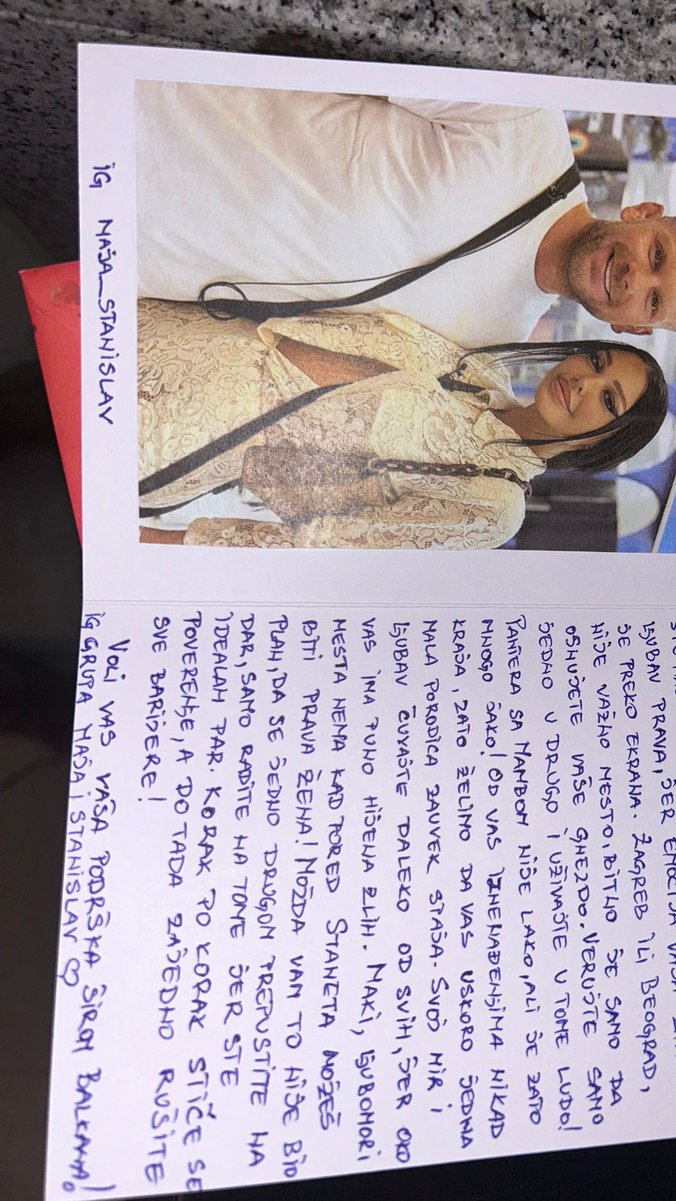 IG MAJA_STANISLAV
LJUBAV PRAVA, JER EMOCIJA VAŠA
JE PREKO EKRANA. ZAGREB ILI BEOGRAD,
NIJE VAŽNO MESTO, BITNO JE SAMO DA
OSNUJETE VAŠE GNEZDO. VERUJTE SAMO
JEDNO U DRUGO I UŽIVAJTE U TOME LUDO!
PANTERA SA MAMBOM NIJE LAKO, ALI JE ZATO
MNOGO JAKO! OD VAS IZNENAĐENJIMA NIKAD
KRAJA, ZATO ŽELIMO DA VAS USKORO JEDNA
MALA PORODICA ZAUVEK SPAJA. SVOJ MIR I
LJUBAV ČUVAJTE DALEKO OD SVIH, JER OKO
VAS IMA PUNO HIJENA ZLIH. MAKI, LJUBOMORI
MESTA NEMA KAD PORED STANETA MOŽEŠ
BITI PRAVA ŽENA! MOŽDA VAM TO NIJE BIO
PLAN, DA SE JEDNO DRUGOM PREPUSTITE NA
DAR, SAMO RADITE NA TOME JER STE
IDEALAN PAR. KORAK PO KORAK STIČE SE
POVERENJE, A DO TADA ZAJEDNO RUŠITE
SVE BARIJERE!
VOLI VAS VAŠA PODRŠKA ŠIROM BALKANA!
IG GRUPA MAJA I STANISLAV ♡